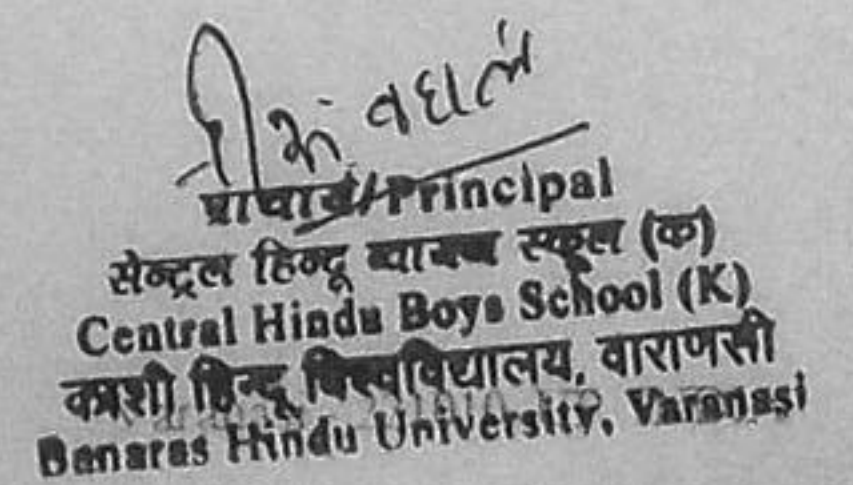 प्राचार्य/Principal
सेन्ट्रल हिन्दू ब्वायज स्कूल (क)
Central Hindu Boys School (K)
काशी हिन्दू विश्वविद्यालय, वाराणसी
Banaras Hindu University, Varanasi